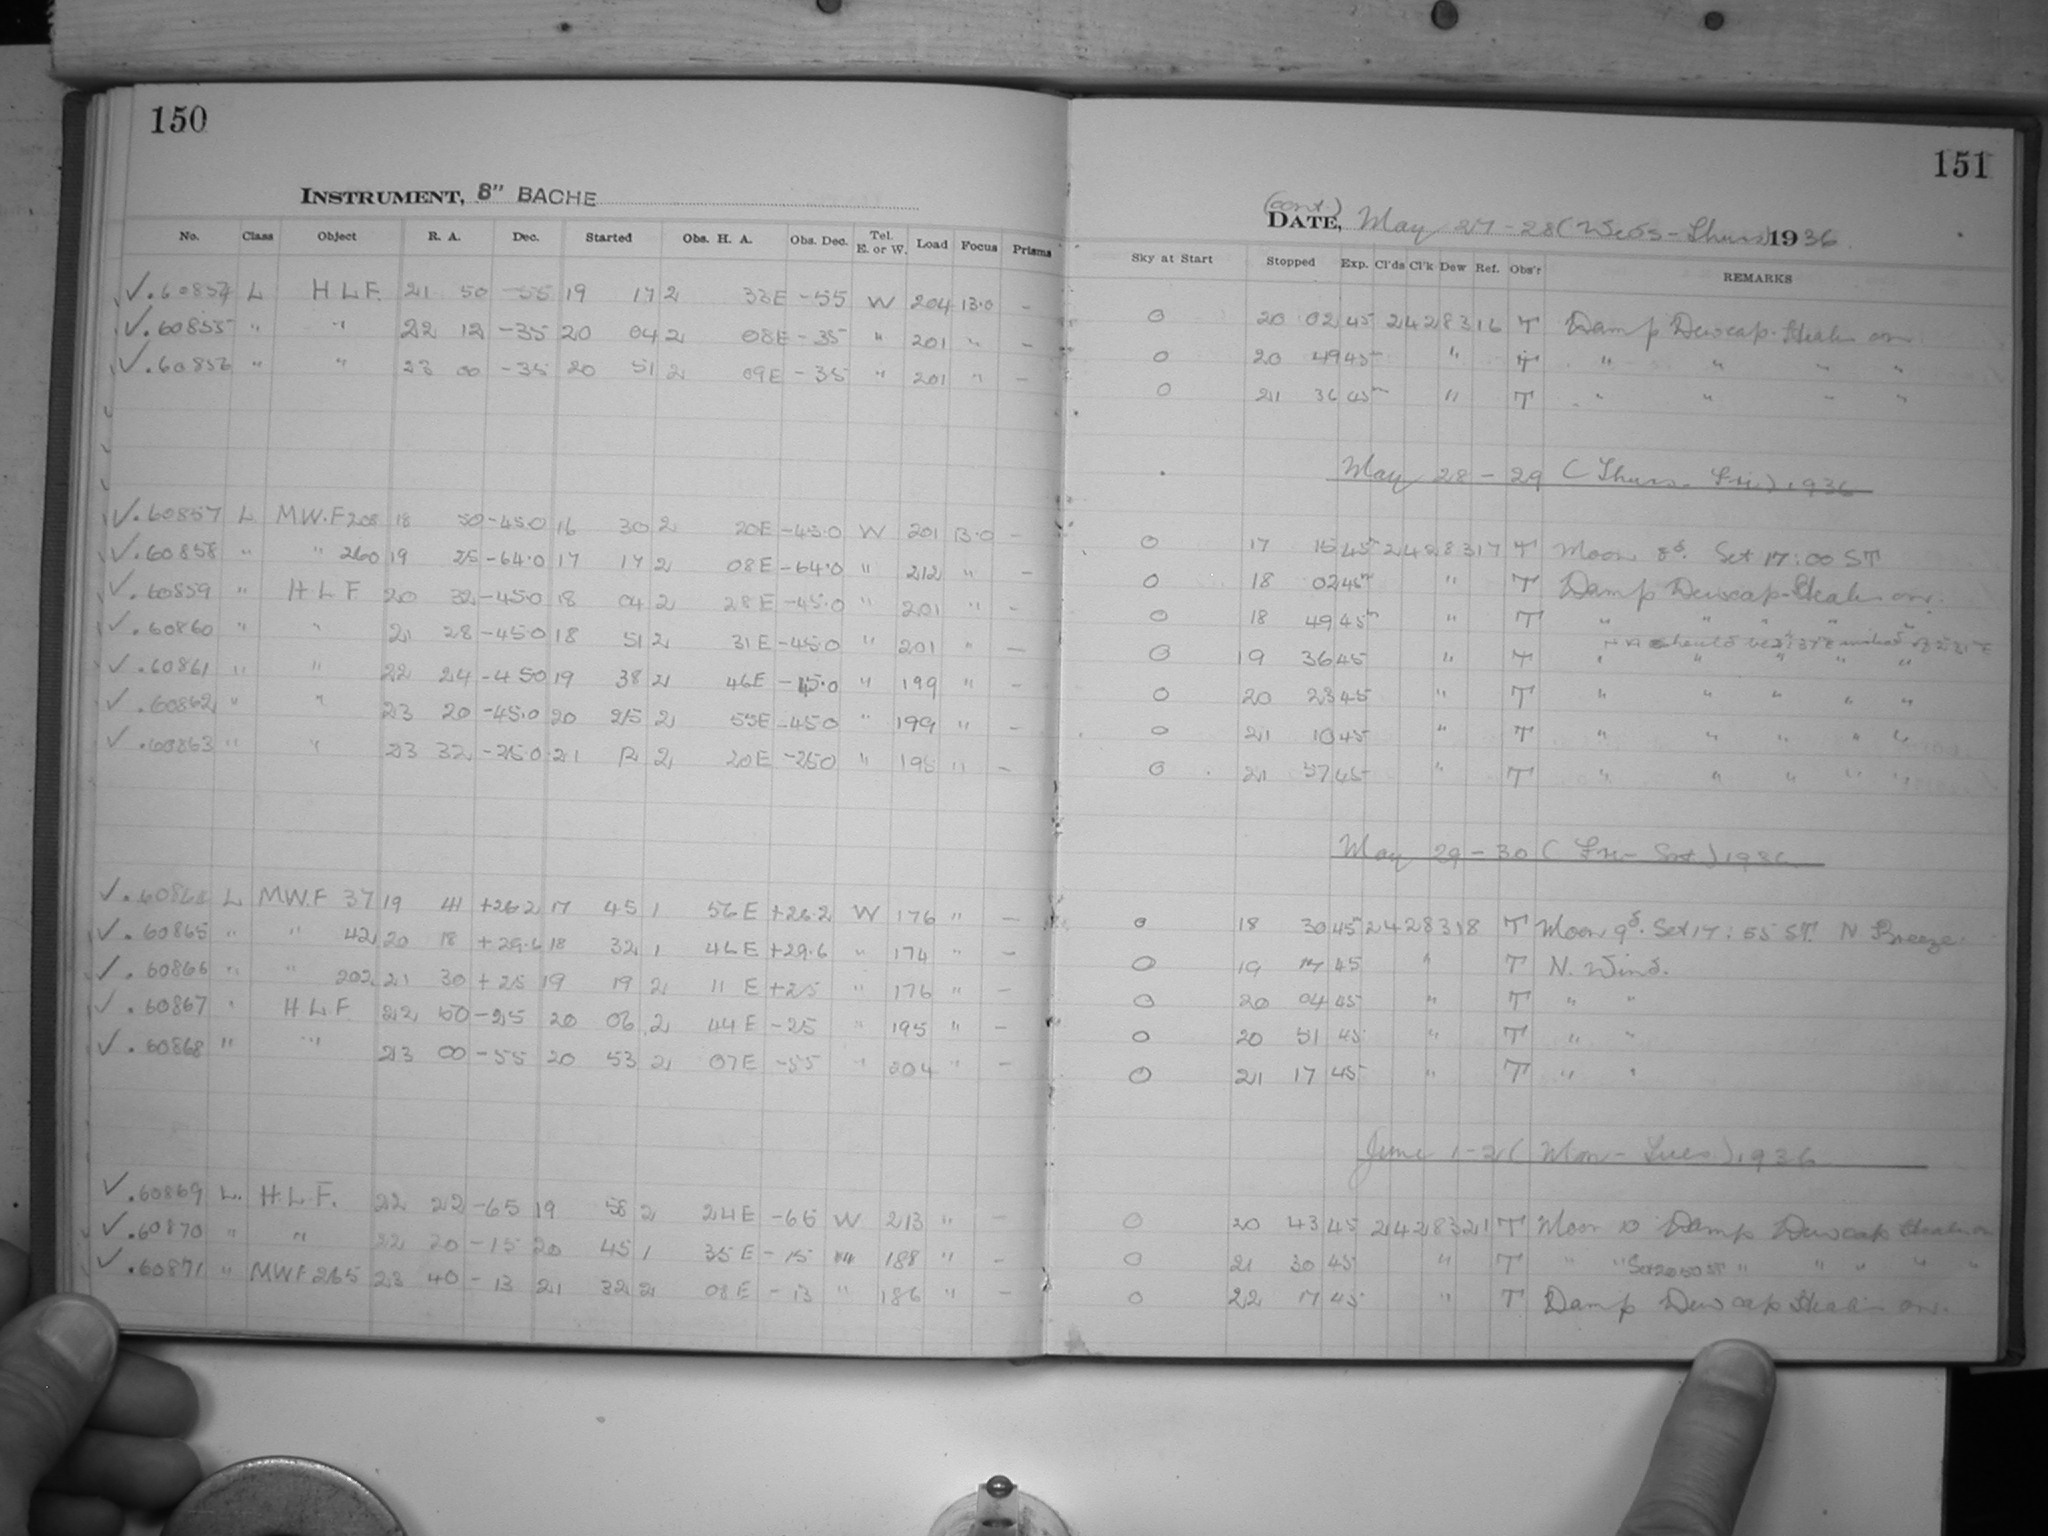 150
INSTRUMENT, 8" BACHE
No. Class Object R. A. Dec. Started Obs. H. A. Obs. Dec. Tel. E. or W. Load Focus Prisms
✓.60854 L H L F. 21 50 -55 19 17 2 33E -55 W 204 13.0 -
✓.60855 " " 22 12 -35 20 04 2 08E -35 " 201 " -
✓.60856 " " 23 00 -35 20 51 2 09E -35 " 201 " -
✓.60857 L MW.F 208 18 50 -45.0 16 30 2 20E -45.0 W 201 13.0 -
✓.60858 " " 260 19 25 -64.0 17 17 2 08E -64.0 " 212 " -
✓.60859 " H L F 20 32 -45.0 18 04 2 28E -45.0 " 201 " -
✓.60860 " " 21 28 -45.0 18 51 2 31E -45.0 " 201 " -
✓.60861 " " 22 24 -45.0 19 38 2 46E -45.0 " 199 " -
✓.60862 " " 23 20 -45.0 20 25 2 55E -45.0 " 199 " -
✓.60863 " " 23 32 -25.0 21 12 2 20E -25.0 " 195 " -
✓.60864 L MW.F 37 19 41 +26.2 17 45 1 56E +26.2 W 176 " -
✓.60865 " " 42 20 18 +29.6 18 32 1 46E +29.6 " 174 " -
✓.60866 " " 202 21 30 +25 19 19 2 11E +25 " 176 " -
✓.60867 " H L F. 22 50 -25 20 06 2 44E -25 " 195 " -
✓.60868 " " 23 00 -55 20 53 2 07E -55 " 204 " -
✓.60869 L. H.L F. 22 22 -65 19 58 2 24E -65 W 213 " -
✓.60870 " " 22 20 -15 20 45 1 35E -15 188 " -
✓.60871 " MWF 265 23 40 -13 21 32 2 08E -13 " 186 " -
151
(cont.)
DATE, May 27-28 (Weds-Thurs) 1936
Sky at Start Stopped Exp. Cl'ds Cl'k Dew Ref. Obs'r REMARKS
0 20 02 45 2428316 T Damp Dewcap-Heater on
0 20 49 45m " T " " " "
0 21 36 45m " T " " " "
May 28-29 (Thurs-Fri) 1936
0 17 15 45m 2428317 T Moon 8d. Set 17:00 ST
0 18 02 45m " T Damp Dewcap-Heater on.
0 18 49 45m " T " " " "
should be instead of
0 19 36 45 " T " " " "
0 20 23 45 " T " " " "
0 21 10 45 " T " " " "
0 21 57 45 " T " " " "
May 29-30 (Fri-Sat) 1936
0 18 30 45m 2428318 T Moon 9d. Set 17:55 ST. N Breeze.
0 19 17 45 " T N. Wind.
0 20 04 45 " T " "
0 20 51 45 " T " "
0 21 17 45 " T " "
June 1-2 (Mon-Tues) 1936
0 20 43 45 2428321 T Moon Damp Dewcap Heater on
0 21 30 45 " T " " Set 20 50 ST " " " " "
0 22 17 45 " T Damp Dewcap Heater on.